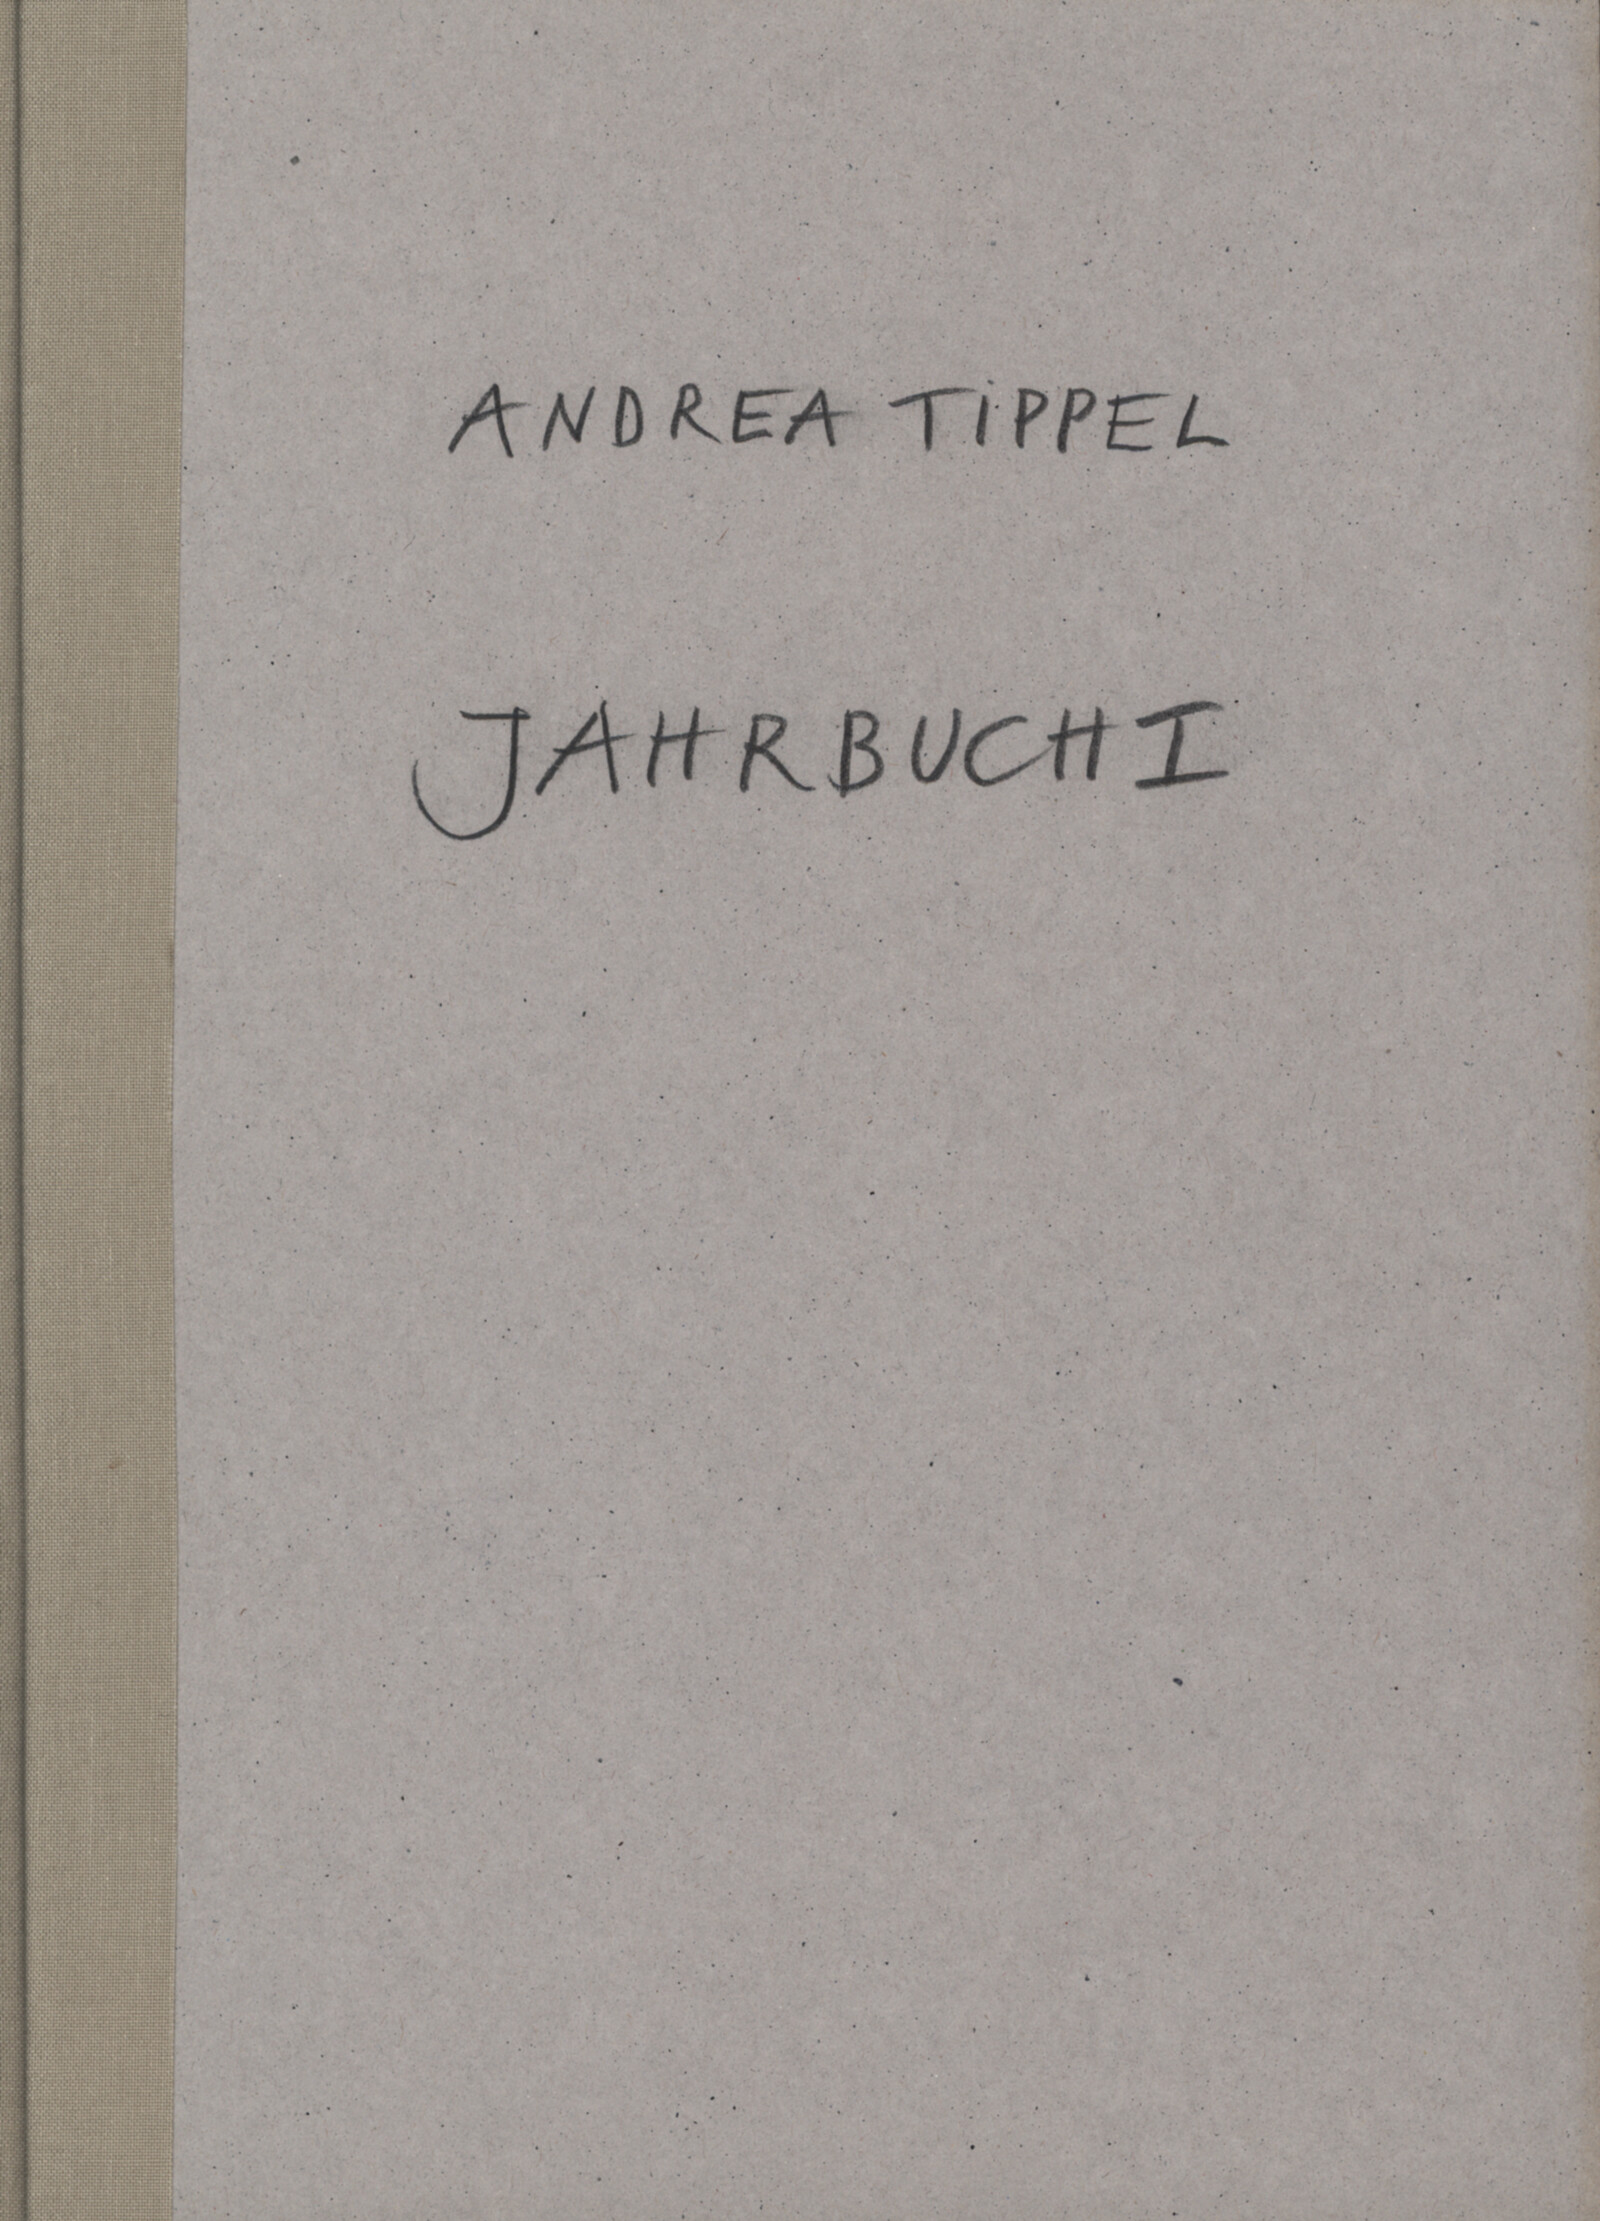 ANDREA TiPPEL
JAHRBUCH I